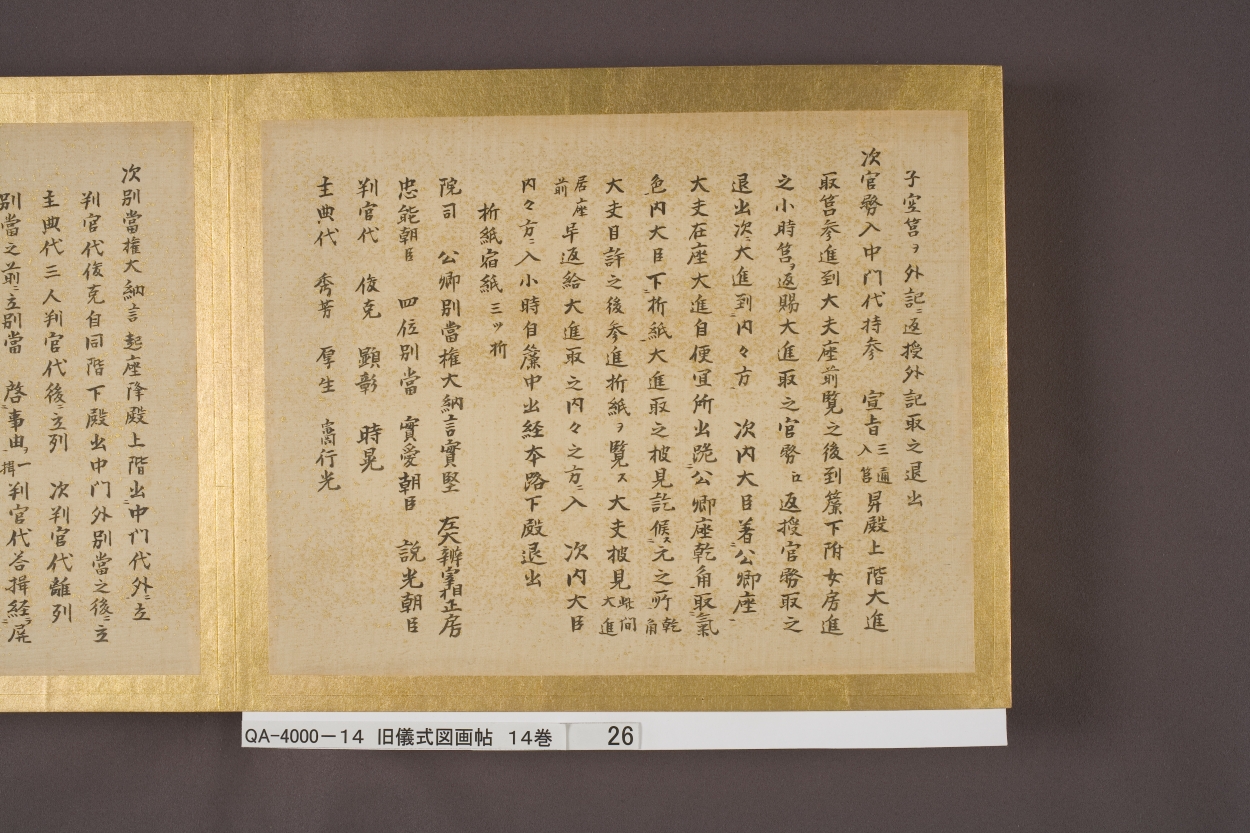 子空筥ヲ外記ニ返授外記取之退出
次官務入中门代持参　宣旨三通入筥昇殿上階大進
取筥参進到大夫座前覧之後到簾下附女房進
之小時筥ヲ返賜大進取之官務ニ返授官務取之
退出次ニ大進到内々方　次内大臣著公卿座
大夫在座大進自便宜所出跪公卿座乾角取氣
色内大臣下折紙大進取之披見訖候ス元之所乾角
大夫目許之後参進折紙ヲ覧ス大夫披見此间大進
居座前早返給大進取之内々之方ニ入　次内大臣
内々方ニ入小時自簾中出経本路下殿退出
折紙宿紙三ツ折
院司　公卿別當権大納言實堅　左大辨宰相正房
忠能朝臣　四位別當　實愛朝臣　説光朝臣
判官代　俊克　顕彰　時晃
主典代　秀芳　厚生　行光
次別當権大納言起座降殿上階出中门代外ニ立
判官代俊克自同階下殿出中门外別當之後ニ立
主典代三人判官代後ニ立列　次判官代離列
別當之前ニ立別當　啓事由ヲ一揖判官代答揖経屏
QA-4000-14 旧儀式図画帖 14巻 26